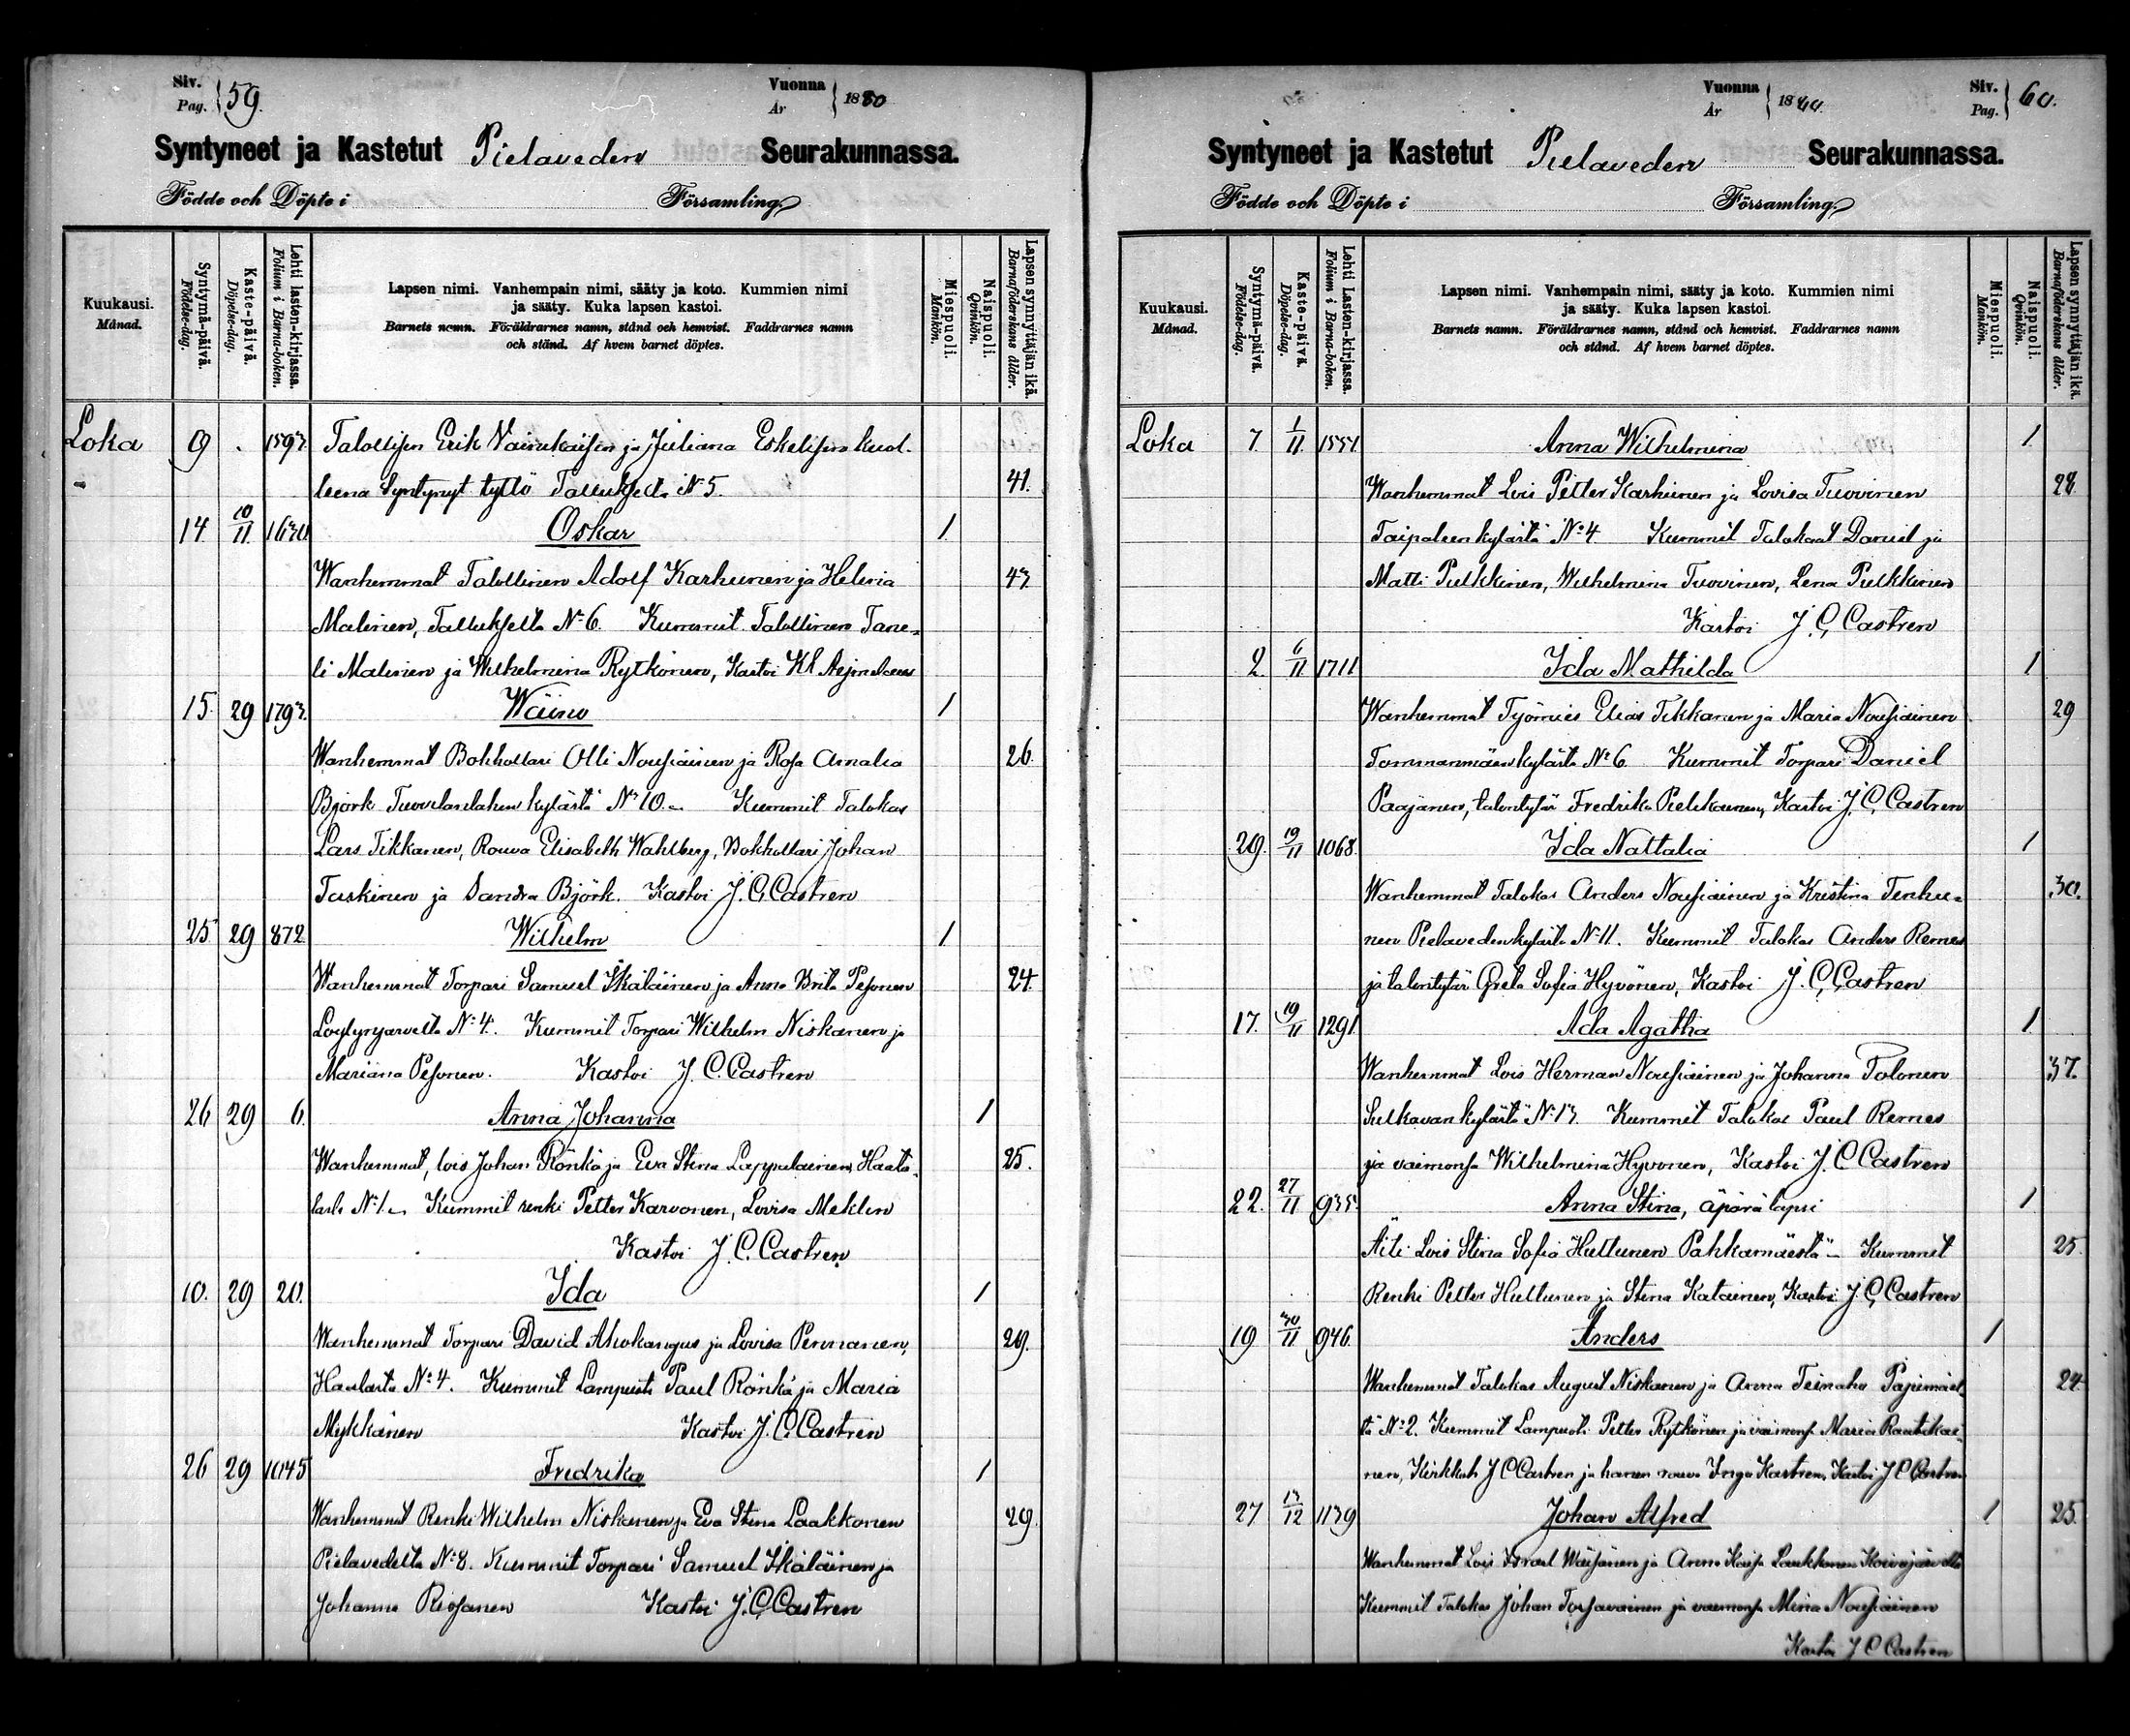 Siv. Pag. 59.
Vuonna År 1880
Syntyneet ja Kastetut Pielaveden Seurakunnassa.
Födde och Döpte i Församling.
Kuukausi. Månad.
Syntymä-päivä. Födelse-dag.
Kaste-päivä. Döpelse-dag.
Lehti lasten-kirjassa. Folium i Barna-boken.
Lapsen nimi. Vanhempain nimi, sääty ja koto. Kummien nimi
ja sääty. Kuka lapsen kastoi.
Barnets namn. Föräldrarnes namn, stånd och hemvist. Faddrarnes namn
och stånd. Af hvem barnet döptes.
Miespuoli. Mankön.
Naispuoli. Qvinkön.
Lapsen synnyttäjän ikä. Barnaföderskans ålder.
Loka 9 . 1593 Talollisen Erik Väinikaisen ja Juliana Eskelisen kuol-
leena Syntynyt tyttö Tallukselta № 5. 41.
14 10/11 1630 Oskar 1
Wanhemmat Talollinen Adolf Karhunen ja Helena 43
Malinen, Tallukselta № 6. Kummit Talollinen Tane-
li Malinen ja Wilhelmina Rytkönen, Kastoi
15. 29 1793. Wäinö 1
Wanhemmat Bokhollari Olli Nousiainen ja Rosa Amalia 26.
Björk Tuovilanlahen kylästä № 10. Kummit Talokas
Lars Tikkanen, Rouva Elisabeth Wahlberg, Bokhollari Johan
Taskinen ja Sandra Björk. Kastoi J. C. Castren
25 29 872 Wilhelm 1
Wanhemmat Torpari Samuel Ikäläinen ja Anna Brita Pesonen 24.
№ 4. Kummit Torpari Wilhelm Niskanen ja
Mariana Pesonen. Kastoi J. C. Castren
26 29 6. Anna Johanna 1
Wanhemmat, lois Johan Rönkä ja Eva Stina Lappalainen, Haata- 25.
lasta № 1. Kummit renki Petter Karvonen, Lovisa Meklin
Kastoi J. C. Castren
10. 29 20. Ida 1
Wanhemmat Torpari David Ahokangus ja Lovisa Pennanen, 29.
№ 4. Kummit Lampuoti Paul Rönkä ja Maria
Mykkänen Kastoi J. C. Castren
26 29 1045 Fredrika 1
Wanhemmat Renki Wilhelm Niskanen ja Eva Stina Laakkonen 29.
Pielavedelta № 8. Kummit Torpari Samuel Ikäläinen ja
Johanna Kastoi J. C. Castren
Siv. Pag. 60.
Vuonna År 1880.
Syntyneet ja Kastetut Pielaveden Seurakunnassa.
Födde och Döpte i Församling.
Kuukausi. Månad.
Syntymä-päivä. Födelse-dag.
Kaste-päivä. Döpelse-dag.
Lehti Lasten-kirjassa. Folium i Barna-boken.
Lapsen nimi. Vanhempain nimi, sääty ja koto. Kummien nimi
ja sääty. Kuka lapsen kastoi.
Barnets namn. Föräldrarnes namn, stånd och hemvist. Faddrarnes namn
och stånd. Af hvem barnet döptes.
Miespuoli. Mankön.
Naispuoli. Qvinkön.
Lapsen synnyttäjän ikä. Barnaföderskans ålder.
Loka 7. 1/11 1551 Anna Wilhelmina 1
Wanhemmat Lois Petter Karhunen ja Lovisa Tuovinen 28
Taipaleenkylästä № 4 Kummit Talokaat Daniel ja
Matti Pulkkinen, Wilhelmina Tuovinen, Lena Pulkkinen
Kastoi J. C. Castren
2. 6/11 1711 Ida Mathilda 1
Wanhemmat Työmies Elias Tikkanen ja Maria Nousiainen 29
Tommanmäenkylästä № 6 Kummit Torpari Daniel
Paajanen, talontytär Fredrika Pielikainen, Kastoi J. C. Castren
29. 19/11 1068. Ida Nattalia 1
Wanhemmat Talokas Anders Nousiainen ja Kristina Tenhu- 30.
nen Pielavedenkylästä № 11. Kummit Talokas Anders Remes
ja talontytär Greta Sofia Hyvönen, Kastoi J. C. Castren
17. 19/11 1291. Ada Agatha 1
Wanhemmat Lois Herman Nousiainen ja Johanna Tolonen 37.
Sulkavankylästä № 13 Kummit Talokas Paul Remes
ja vaimonsa Wilhelmina Hyvönen, Kastoi J. C. Castren
22. 27/11 935. Anna Stina, äpärä lapsi 1
Äiti Lois Stina Sofia Huttunen Pahkamäestä Kummit 25.
Renki Petter Huttunen ja Stina Katainen, Kastoi J. C. Castren
19 30/11 946. Anders 1
Wanhemmat Talokas August Niskanen ja Anna Teinaho Pajumäes- 24
tä № 2. Kummit Lampuoti Petter Rytkönen ja vaimonsa Maria Rautikai-
nen, Kirkkoh J C Castren ja hänen rouva Inga Kastren, Kastoi J C Castren
27 13/12 1139 Johan Alfred 1 25.
Wanhemmat Lois Israel Wäisänen ja Anna Kaisa Laukkanen Koivujärveltä
Kummit Talokas Johan ja vaimonsa Mina Nousiainen
Kastoi J C Castren